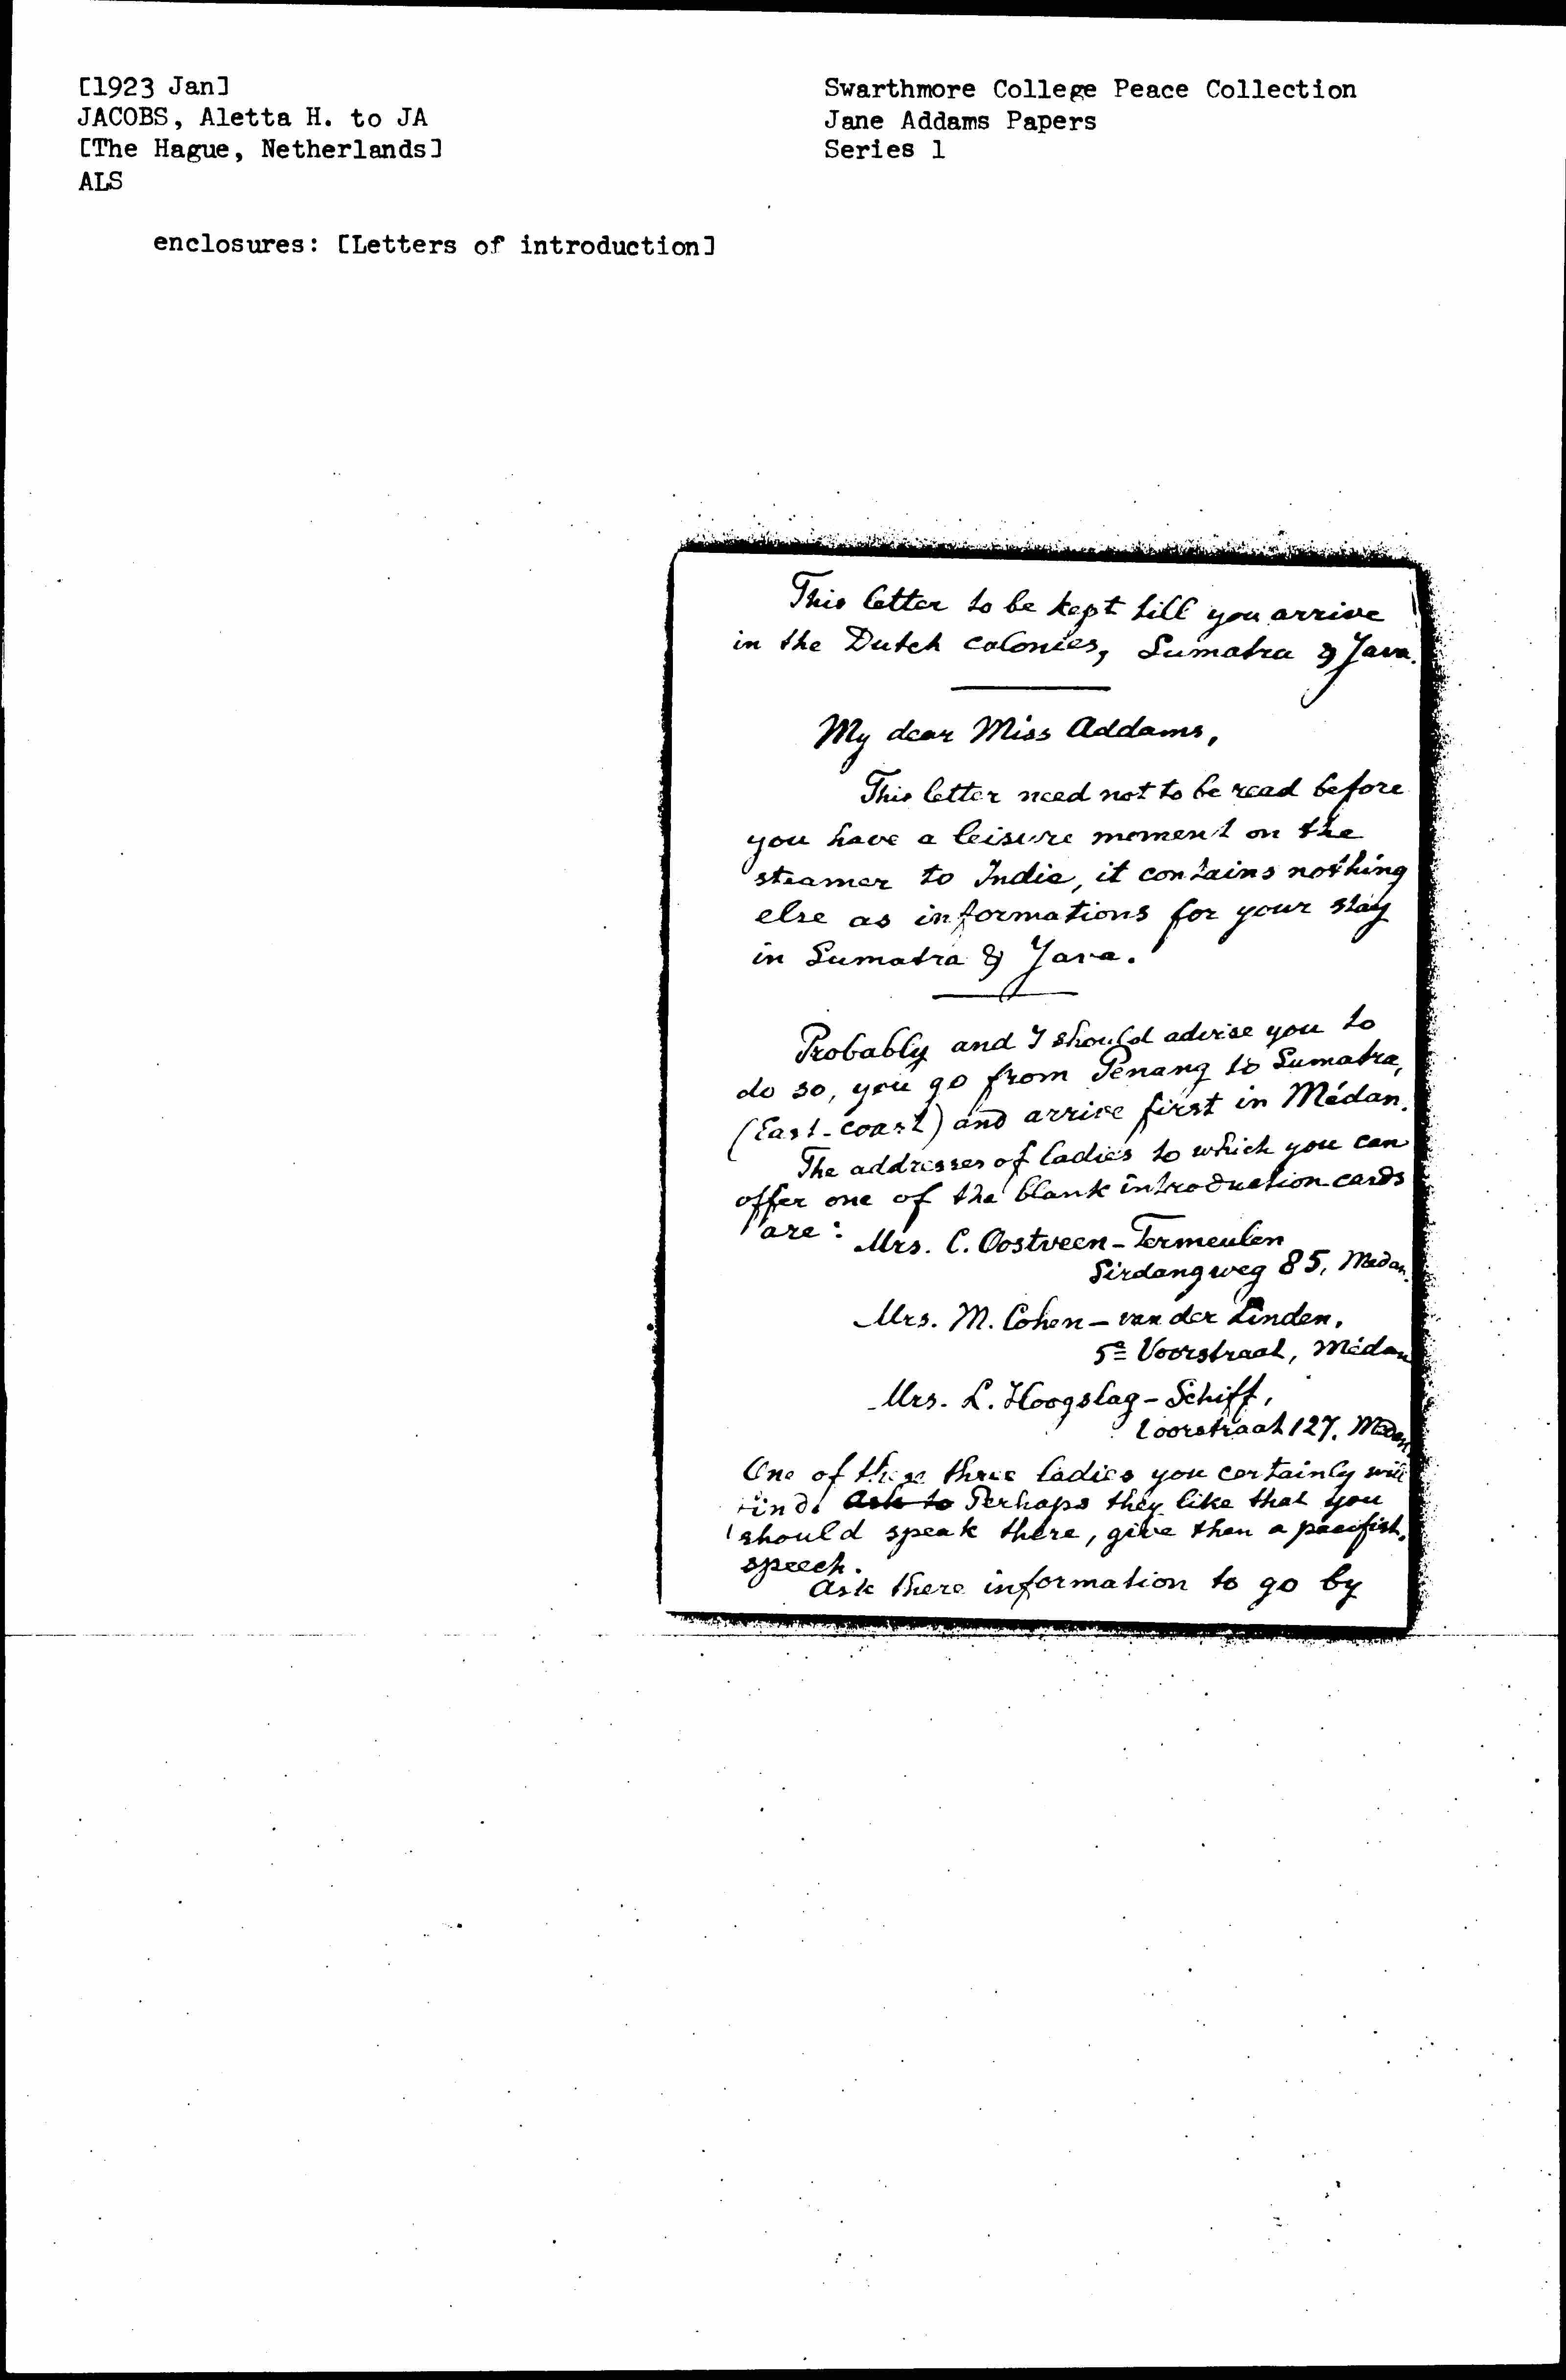 [1923 Jan]
JACOBS, Aletta H. to JA
[The Hague, Netherlands]
ALS
enclosures: [Letters of introduction]
Swarthmore College Peace Collection
Jane Addams Papers
Series 1
This letter to be kept till you arrive
in the Dutch colonies, Sumatra & Java.
My dear Miss Addams,
This letter need not to be read before
you have a leisure moment on the
steamer to India, it contains nothing
else as informations for your stay
in Sumatra & Java.
Probably and I should advise you to
do so, you go from Penang to Sumatra,
(East-coast) and arrive first in Médan.
The addresses of ladies to which you can
offer one of the blank introduction cards
are:
Mrs. C. Oostveen-Termeulen
Sirdangweg 85, Medan.
Mrs. M. Cohen-van der Linden.
5e Voorstraat, Médan
Mrs. L. Hoogslag-Schiff,
Voorstraat 127. Medan
One of these three ladies you certainly will
find. Ask to Perhaps they like that you
should speak there, give then a pacifist.
speech.
Ask there information to go by